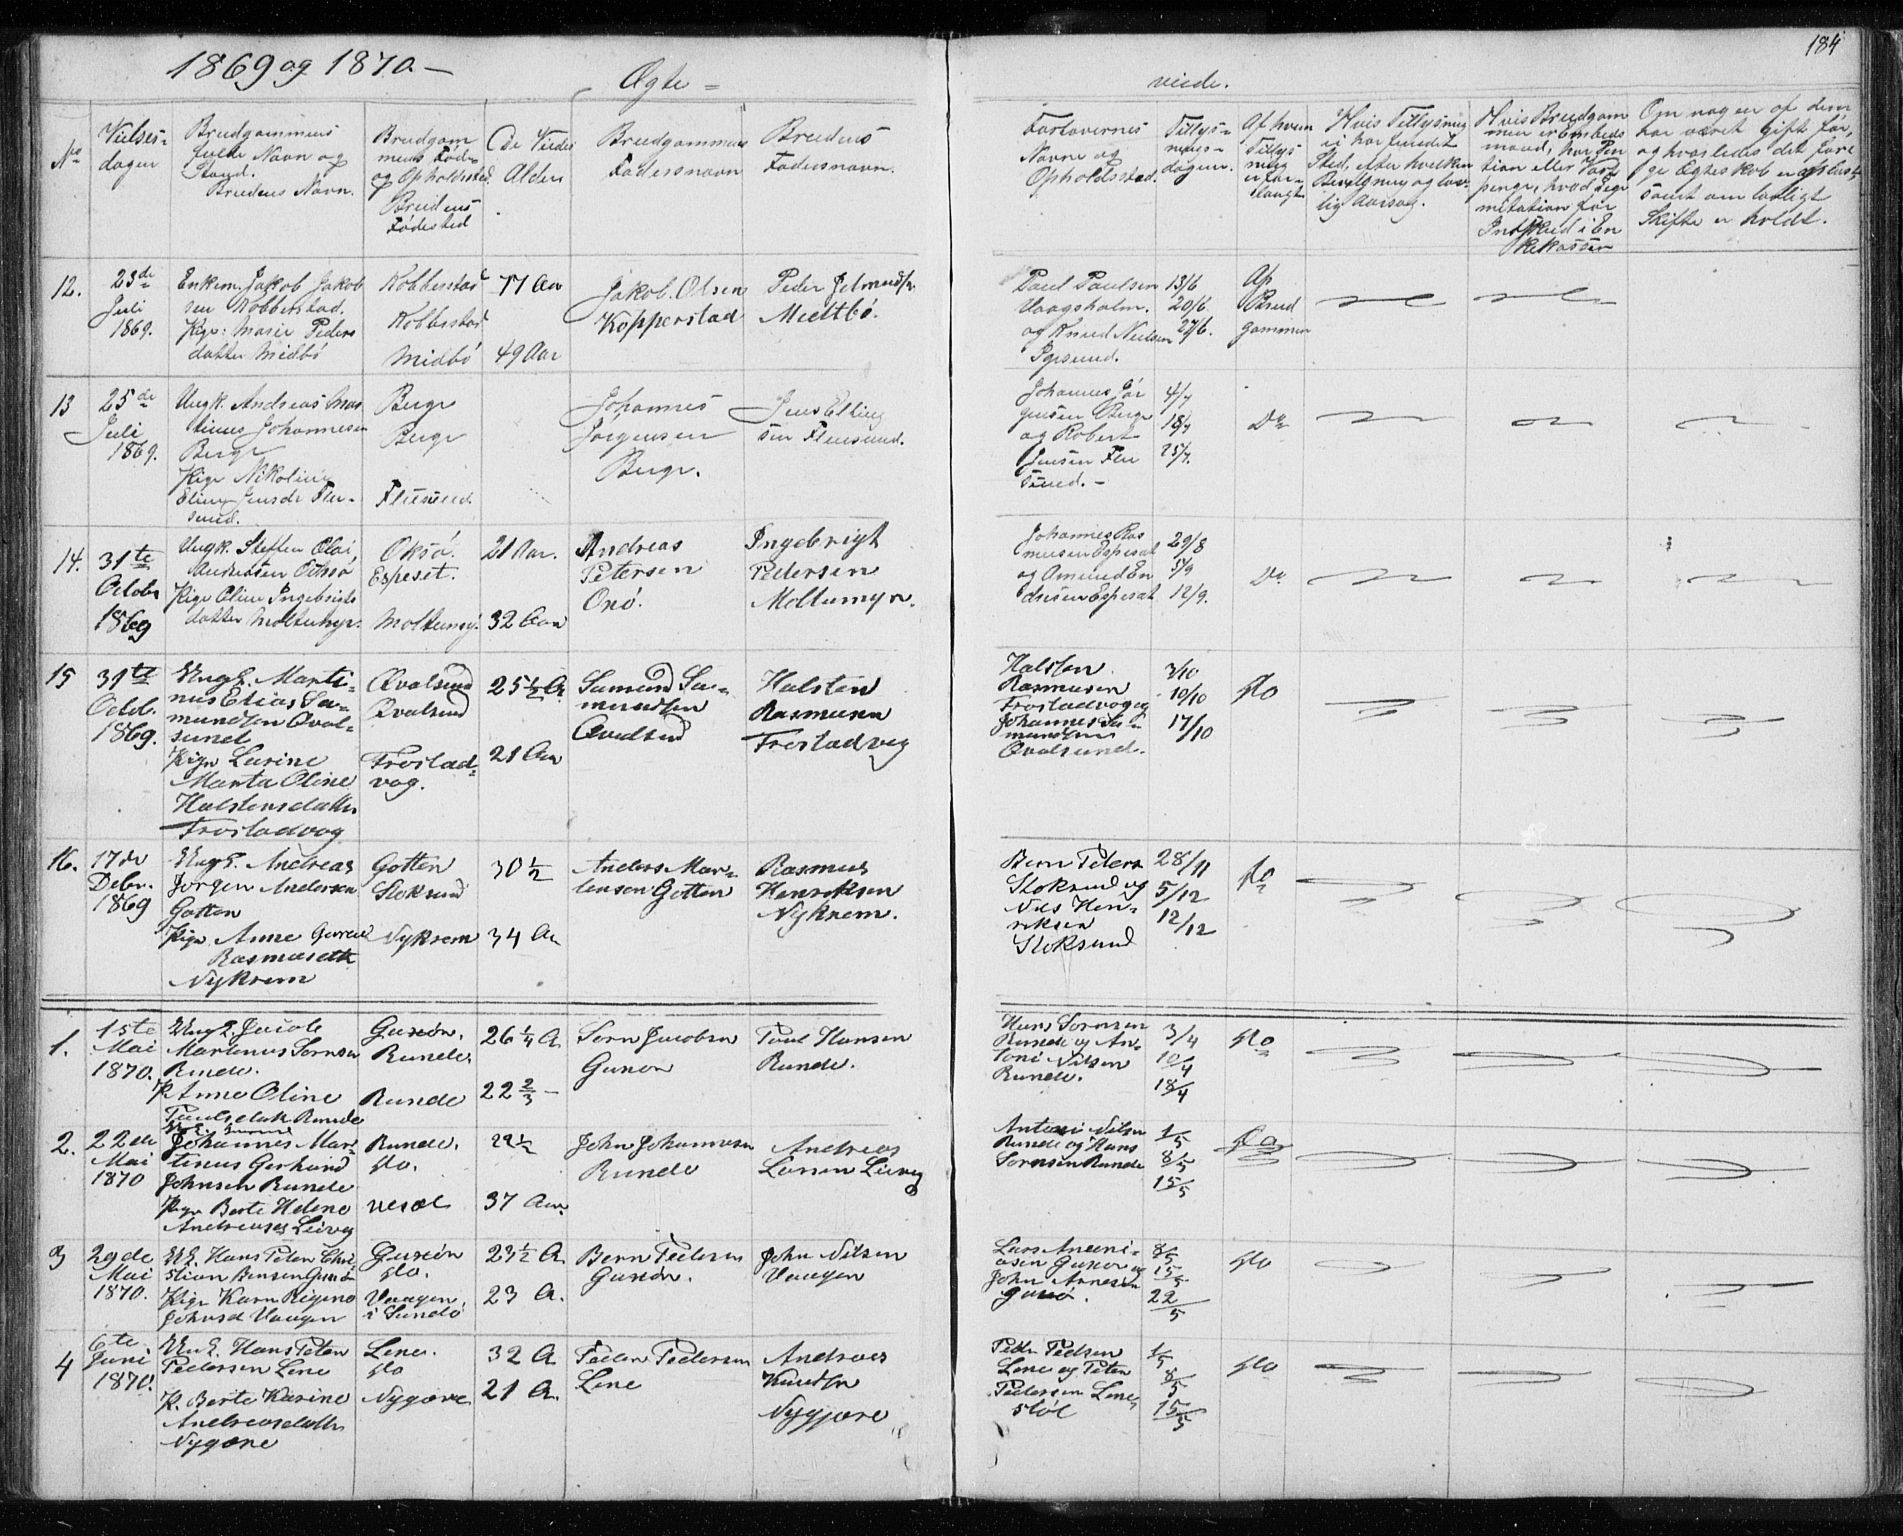 184
1869 og 1870 —
Ægte =
viede.
No
Vielses-
dagen
Brudgommens
fulde Navn og
Stand.
Brudens Navn.
Brudgom
mens Føde
og Opholdssted.
Brudens
Fødested
De Viedes
Alder
Brudgommens
Fadersnavn
Brudens
Fadersnavn.
Forlovernes
Navne og
Opholdssted.
Tillys-
nings-
dagen.
Af hvem
Tillys
ning
er for-
langt
Hvis Tillysning
ei har fundet
Sted, efter hvilken
Bevilgning og lov-
lig Aarsag.
Hvis Brudgom
men er Embeds
mand, har Pen
tion eller Vart
penge, hvad Legi
mitation for
Indskud i En
kekassen
Om nogen af dem
har været gift før,
og hvorledes det for
ge Ægteskab er opløst
samt om lovligt
Skifte er holdt.
12.
23de
Juli
1869.
Enkem. Jakob Jakob
sen Kobberstad.
Pige: Marie Peders
datter Midbø
Kobberstad
Kobberstad
Midbø
77 Aar
49 Aar
Jakob Olsen
Kopperstad
Peder
Midtbø.
Paul Paulsen
Vaagsholm.
og Knud Nielsen
13/6
20/6
27/6.
Af
Brud
gommen
13
25de
Juli
1869.
Ungk. Andreas Mar
tinus Johannesen
Berge
Pige Nikoline
Eline Jensdr Flu-
sund.
Berge
Berge
Flusund
Johannes
Jørgensen
Berge.
Jens Elling
sen Flusund.
Johannes Jør
gensen Berge
og Robert
Jensen Flu
sund. -
4/7
18/7
25/7.
Do
14.
31te
Octobr
1869
Ungk. Steffen Olai
Andreasen
Pige Oline Ingebrigts
datter Moltumyr.
Oksø.
Espeset.
Moltumyr.
21 Aar.
32 Aar
Andreas
Petersen
Onø.
Ingebrigt
Pedersen
Moltumyr.
Johannes Ras
musen Espeset
og Amund En
dresen Espeset
29/8
5/9
12/9.
Do
15
31te
Octb.
1869.
Ungk. Marti-
nus Elias Sa-
mundsen Qval-
sund
Pige Larine
Marta Oline
Halstensdatter
Frostadvog
Qvalsund
Qvalsund
Frostad-
vog.
25 1/2 A.
21 Aar
Samund Sa-
mundsen
Qvalsund
Halsten
Rasmusen
Frostadvog
Halsten
Rasmusen
Frostadvog og
Johannes Sa-
mundsen
Qvalsund.
3/10
10/10
17/10
do
16.
17de
Debr.
1869
Ungk. Andreas
Jørgen Andersen
Gotten
Pige Anne
Rasmusdtt
Nykrem
Gotten
Stoksund
Nykrem
30 1/2
34 Aar
Anders Mar-
tensen Gotten
Rasmus
Henriksen
Nykrem.
Bern Peters
Stoksund og
Nils Hen-
riksen
Stoksund
28/11
5/12
12/12
do
1.
1ste
Mai
1870.
Ungk. Jacob
Martenus Sørnsen
Runde.
P. Anne Oline
Paulsdatt Runde
Gursøn.
Runde.
Runde
26 1/4 A.
22 2/3 -
Sørn Jacobsen
Gursøn
Poul Hansen
Runde.
Hans Sørensen
Runde og An-
toni Nilsen
Runde.
3/4
10/4
18/4
do
2.
22de
Mai
1870
Johannes Mar-
tinus Gerhard
Johnsen Runde
Pige Berte Helene
Andreasdr Leivog
Runde.
do.
22 1/2
37 Aar.
John Johannesen
Runde
Andreas
Larsen Leivog
Antoni Nilsen
Runde og Hans
Sørensen Runde
1/5
8/5
15/5
do
3
29de
Mai
1870.
Uk. Hans Peter Chri
stian Bensen Gursø
Pige Karn Regine
Johnsd Vaagen
Gursøn
do.
Vaagen
i Sandø
23 1/2 A.
23 A.
Bern Pedersen
Gursøn.
John Nilsen
Vaagen
Lars Ananni-
asen Gursø og
John Arnesen
Gursø.
8/5
15/5
22/5
do
4
6te
Juni
1870.
Unk. Hans Peter
Pedersen Lene
P. Berte Karine
Andreasdatter
Nygære
Lene.
do
Nygære
32 A
21 A.
Peder Pedersen
Lene
Andreas
Knudsn
Nygjære
Peder Pedsen
Lene og Peter
Pedersen Lene
støl
1/5
8/5
15/5
do